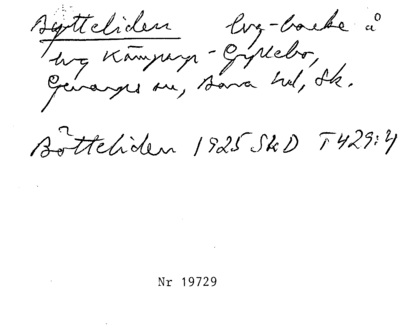 Bytteliden lvg-backe å
lvg Kämpaga - Gryttebo,
Genarps sn, Bara hd, Sk.
Bötteliden 1925 SkD T429:4
Nr 19729